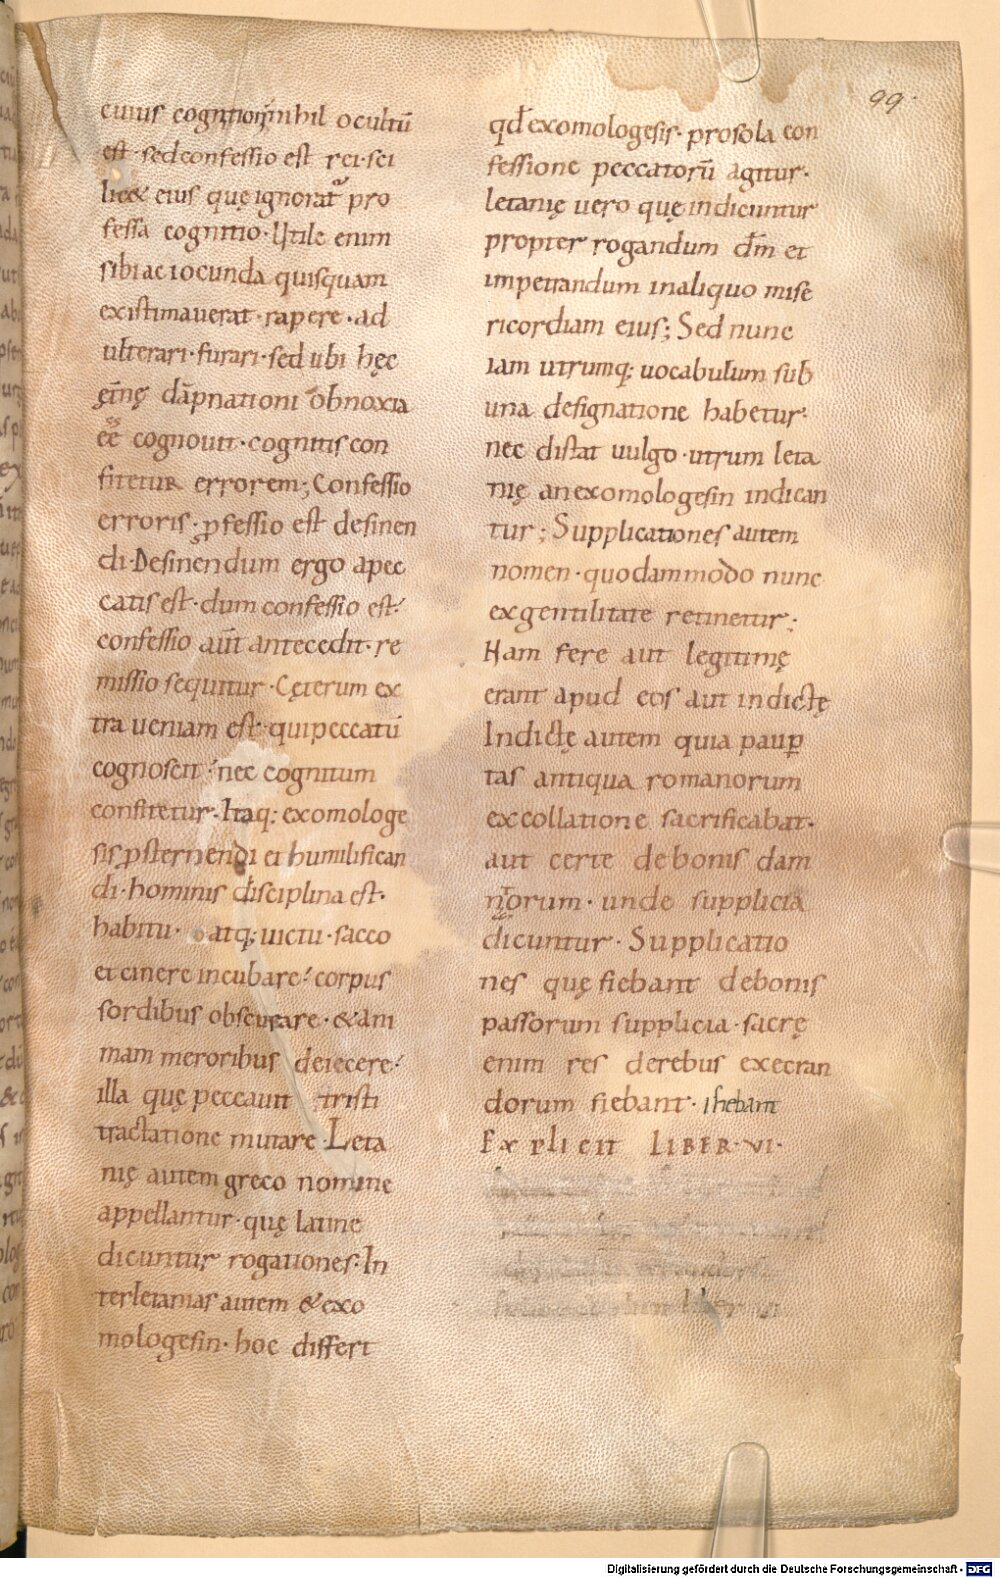 99.
cuius cognitioni nihil ocultū
est · sed confessio est rei · sci
lic& eius quę ignorat̄ pro
fessa cognitio · Utile enim
sibi ac iocunda quisquam
existimauerat · rapere · ad
ulterari · furari · sed ubi hęc
ęt̄nę dāpnationi obnoxia
ēē cognouit · cognitis con
fitetur errorem; Confessio
erroris · ꝓfessio est desinen
di · Desinendum ergo apec
catis est · dum confessio est ·
confessio aūt antecedit · re
missio sequitur · Cęterum ex
tra ueniam est · qui peccatū
cognoscit · nec cognitum
confitetur · Itaq: exomologe
sis ꝓsternendi et humilifican
di · hominis disciplina est ·
habitu · atq; uictu · sacco
et cinere incubare · corpus
sordibus obscurare · & ani
mam meroribus deiecere ·
illa quę peccauit tristi
tractatione mutare · Leta
nię autem greco nomine
appellantur · quę latine
dicuntur rogationes · In
ter letanias autem & exo
mologesin · hoc differt
qd̄ exomologesis · pro sola con
fessione peccatorū agitur ·
letanię uero quę indicuntur
propter rogandum dm̄ et
impetrandum in aliquo mise
ricordiam eius; Sed nunc
iam utrumq; uocabulum sub
una designatione habetur ·
nec distat uulgo · utrum leta
nię an exomologesin indican
tur; Supplicationes autem
nomen · quodammodo nunc
ex gentilitate retinetur;
Nam fere aut legitimę
erant apud eos aut indictę
Indictę autem quia pauꝑ
tas antiqua romanorum
ex collatione sacrificabat ·
aut certe de bonis dam
norum · unde supplicia
dicuntur · Supplicatio
nes quę fiebant de bonis
passorum supplicia · sacrę
enim res de rebus execran
dorum fiebant · fiebant
Explicit LIBER · VI ·
Digitalisierung gefördert durch die Deutsche Forschungsgemeinschaft - DFG